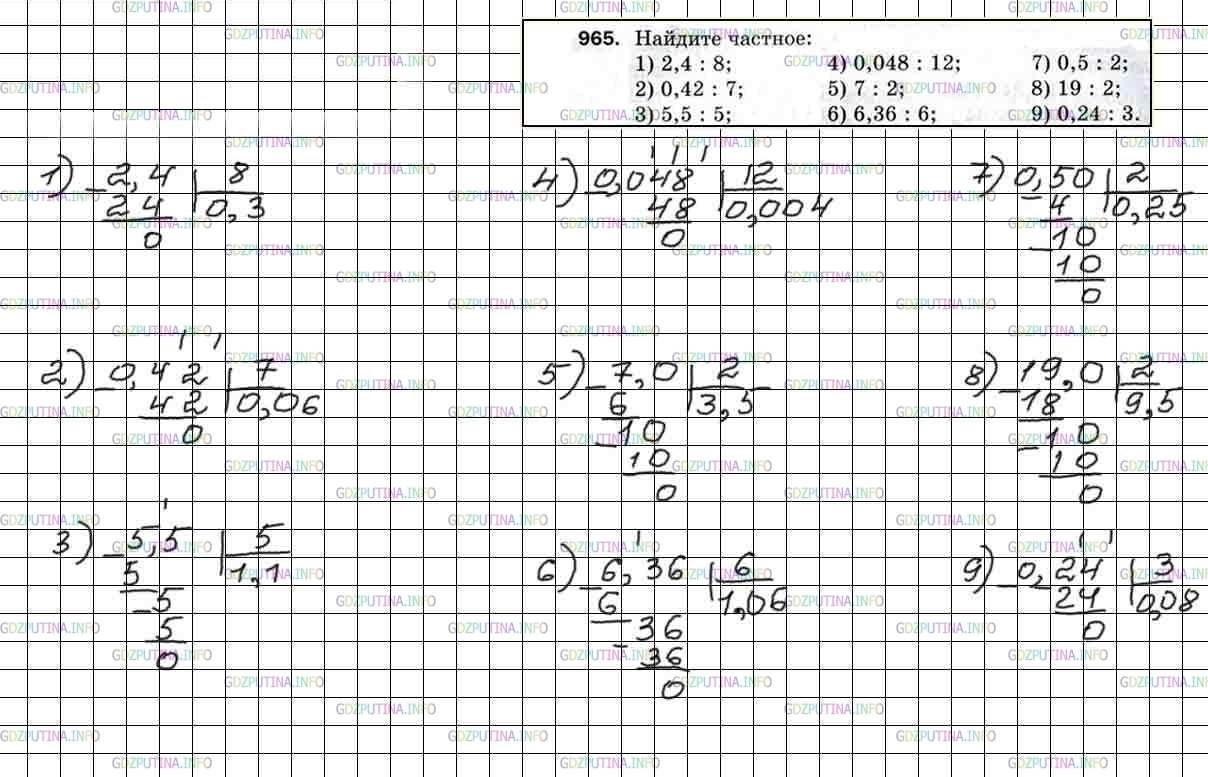 965. Найдите частное:
1) 2,4 : 8; 4) 0,048 : 12; 7) 0,5 : 2;
2) 0,42 : 7; 5) 7 : 2; 8) 19 : 2;
3) 5,5 : 5; 6) 6,36 : 6; 9) 0,24 : 3.
1) 2,4 8
24 0,3
0
4) 0,048 12
48 0,004
0
7) 0,50 2
4 0,25
10
10
0
2) 0,42 7
42 0,06
0
5) 7,0 2
6 3,5
10
10
0
8) 19,0 2
18 9,5
10
10
0
3) 5,5 5
5 1,1
5
5
0
6) 6,36 6
6 1,06
36
36
0
9) 0,24 3
24 0,08
0
GDZPUTINA.INFO